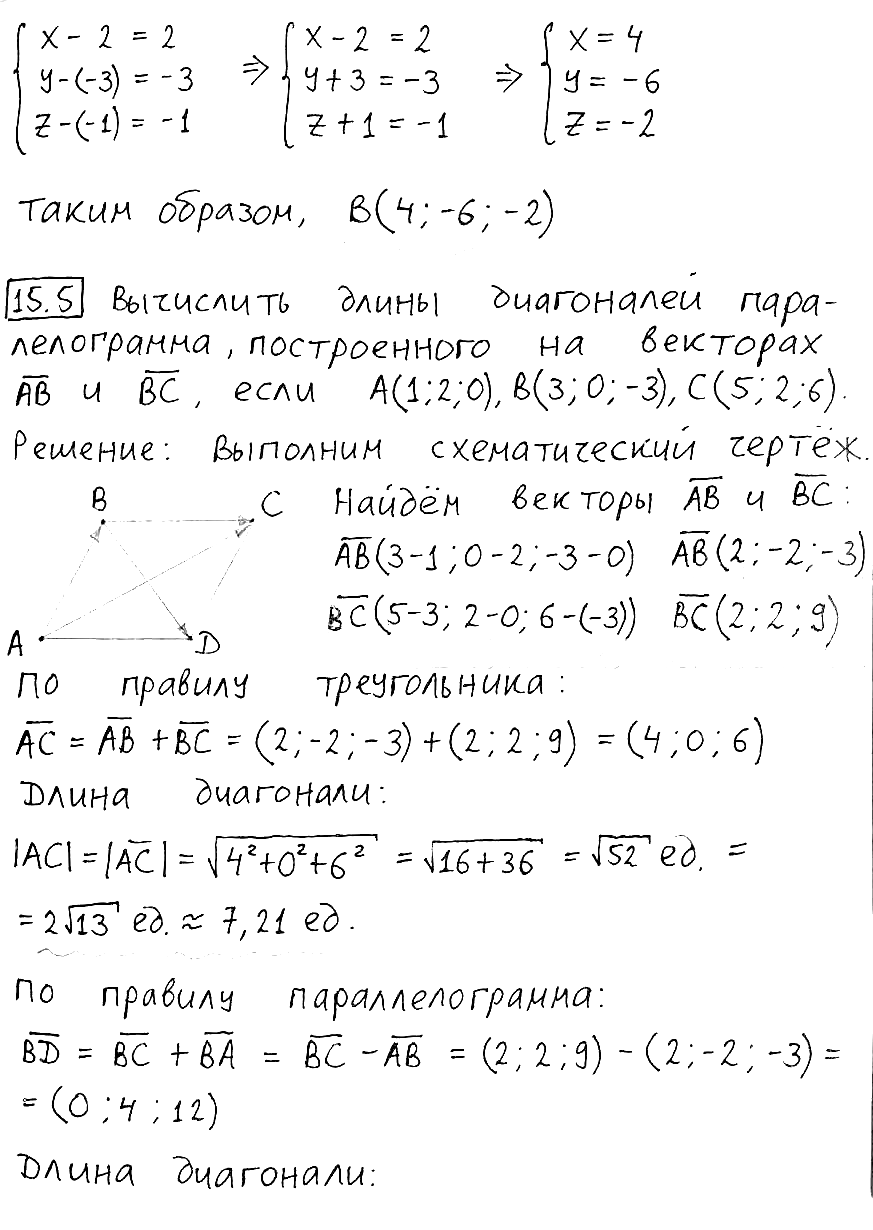 { x - 2 = 2 ⇒ { x - 2 = 2 ⇒ { x = 4
y-(-3) = -3 y + 3 = -3 y = -6
z-(-1) = -1 z + 1 = -1 z = -2
Таким образом, B(4; -6; -2)
15.5 Вычислить длины диагоналей пара-
лелограмма, построенного на векторах
A̅B̅ и B̅C̅, если A(1;2;0), B(3; 0; -3), C(5; 2; 6).
Решение: Выполним схематический чертёж.
B C Найдём векторы A̅B̅ и B̅C̅:
A̅B̅(3-1; 0-2; -3-0) A̅B̅(2; -2; -3)
B̅C̅(5-3; 2-0; 6-(-3)) B̅C̅(2; 2; 9)
A D
По правилу треугольника:
A̅C̅ = A̅B̅ + B̅C̅ = (2; -2; -3) + (2; 2; 9) = (4; 0; 6)
Длина диагонали:
|AC| = |A̅C̅| = √(4²+0²+6²) = √(16+36) = √52 ед. =
= 2√13 ед. ≈ 7,21 ед.
По правилу параллелограмма:
B̅D̅ = B̅C̅ + B̅A̅ = B̅C̅ - A̅B̅ = (2; 2; 9) - (2; -2; -3) =
= (0; 4; 12)
Длина диагонали: